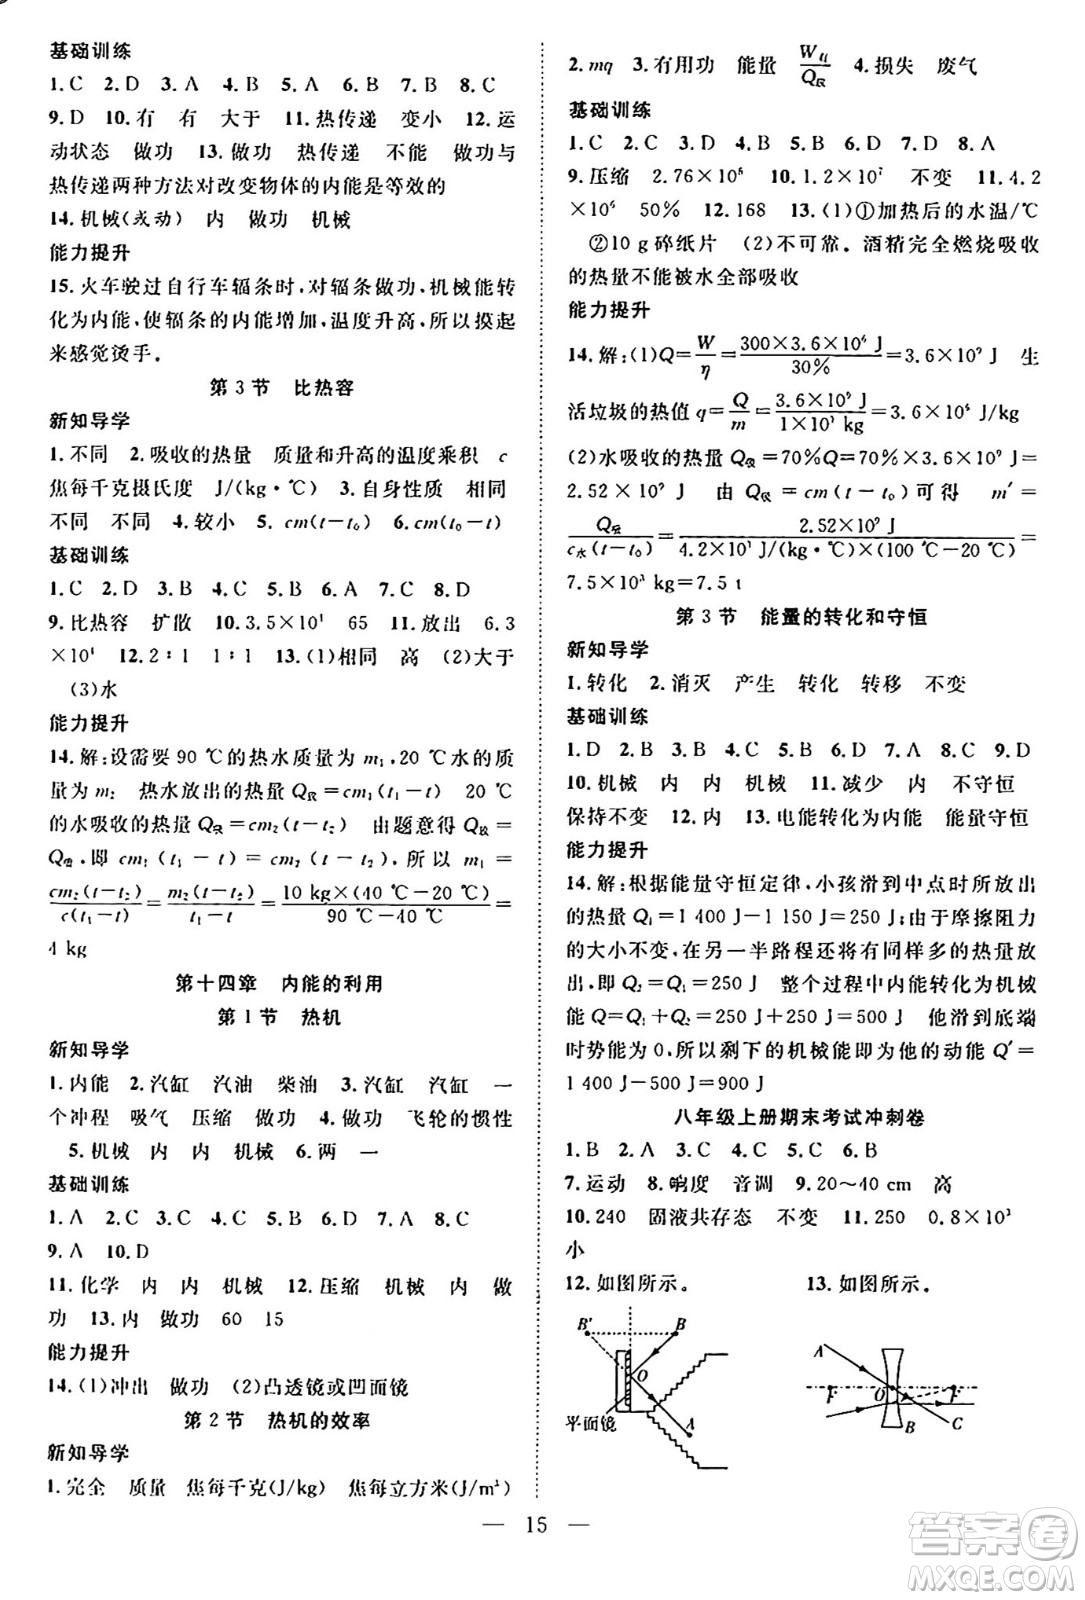 基础训练
1. C  2. D  3. A  4. B  5. A  6. B  7. B  8. C
9. D  10. 有  有  大于  11. 热传递  变小  12. 运
动状态  做功  13. 做功  热传递  不能  做功与
热传递两种方法对改变物体的内能是等效的
14. 机械(或动)  内  做功  机械
能力提升
15. 火车驶过自行车辐条时,对辐条做功,机械能转
化为内能,使辐条的内能增加,温度升高,所以摸起
来感觉烫手。
第 3 节  比热容
新知导学
1. 不同  2. 吸收的热量  质量和升高的温度乘积  c
焦每千克摄氏度  J/(kg·℃)  3. 自身性质  相同
不同  不同  4. 较小  5. cm(t-t₀)  6. cm(t₀-t)
基础训练
1. C  2. D  3. B  4. C  5. A  6. D  7. C  8. D
9. 比热容  扩散  10. 3.5×10⁴  65  11. 放出  6.3
×10⁴  12. 2∶1  1∶1  13. (1)相同  高  (2)大于
(3)水
能力提升
14. 解:设需要 90 ℃的热水质量为 m₁,20 ℃水的质
量为 m₂  热水放出的热量 Q放=cm₁(t₁-t)  20 ℃
的水吸收的热量 Q吸=cm₂(t-t₂)  由题意得 Q放=
Q吸,即 cm₁(t₁-t)=cm₂(t-t₂),所以 m₁=
cm₂(t-t₂)/c(t₁-t)=m₂(t-t₂)/t₁-t=10 kg×(40 ℃-20 ℃)/90 ℃-40 ℃=
4 kg
第十四章  内能的利用
第 1 节  热机
新知导学
1. 内能  2. 汽缸  汽油  柴油  3. 汽缸  汽缸  一
个冲程  吸气  压缩  做功  4. 做功  飞轮的惯性
5. 机械  内  内  机械  6. 两  一
基础训练
1. A  2. C  3. D  4. C  5. B  6. D  7. A  8. C
9. A  10. D
11. 化学  内  内  机械  12. 压缩  机械  内  做
功  13. 内  做功  60  15
能力提升
14. (1)冲出  做功  (2)凸透镜或凹面镜
第 2 节  热机的效率
新知导学
1. 完全  质量  焦每千克(J/kg)  焦每立方米(J/m³)
2. mq  3. 有用功  能量  W有/Q放  4. 损失  废气
基础训练
1. C  2. C  3. D  4. B  5. C  6. D  7. D  8. A
9. 压缩  2.76×10⁶  10. 1.2×10⁷  不变  11. 4.2
×10⁶  50%  12. 168  13. (1)①加热后的水温/℃
②10 g 碎纸片  (2)不可靠。酒精完全燃烧吸收
的热量不能被水全部吸收
能力提升
14. 解:(1)Q=W/η=300×3.6×10⁶ J/30%=3.6×10⁹ J  生
活垃圾的热值 q=Q/m=3.6×10⁹ J/1×10³ kg=3.6×10⁶ J/kg
(2)水吸收的热量 Q吸=70%Q=70%×3.6×10⁹ J=
2.52×10⁹ J  由 Q吸=cm(t-t₀)可得  m′=
Q吸/c水(t-t₀)=2.52×10⁹ J/4.2×10³ J/(kg·℃)×(100 ℃-20 ℃)=
7.5×10³ kg=7.5 t
第 3 节  能量的转化和守恒
新知导学
1. 转化  2. 消灭  产生  转化  转移  不变
基础训练
1. D  2. B  3. D  4. B  5. A  6. D  7. A  8. C  9. D
10. 机械  内  内  机械  11. 减少  内  不守恒
保持不变  12. 内  13. 电能转化为内能  能量守恒
能力提升
14. 解:根据能量守恒定律,小孩滑到中点时所放出
的热量 Q₁=1 400 J-1 150 J=250 J;由于摩擦阻力
的大小不变,另一半路程还将有同样多的热量放
出,所以 Q₂=Q₁=250 J  整个过程中内能转化为机械
能 Q=Q₁+Q₂=250 J+250 J=500 J  他滑到底端
时势能为 0,所以剩下的机械能即为他的动能 Q′=
1 400 J-500 J=900 J
八年级上册期末考试冲刺卷
1. B  2. A  3. C  4. C  5. C  6. D
7. 运动  8. 响度  音调  9. 20～40 cm  高
10. 240  固液共存态  不变  11. 250  0.8×10³
小
12. 如图所示。  13. 如图所示。
B′  B  O  平面镜
A  F  O  F  B  C
— 15 —
答案卷